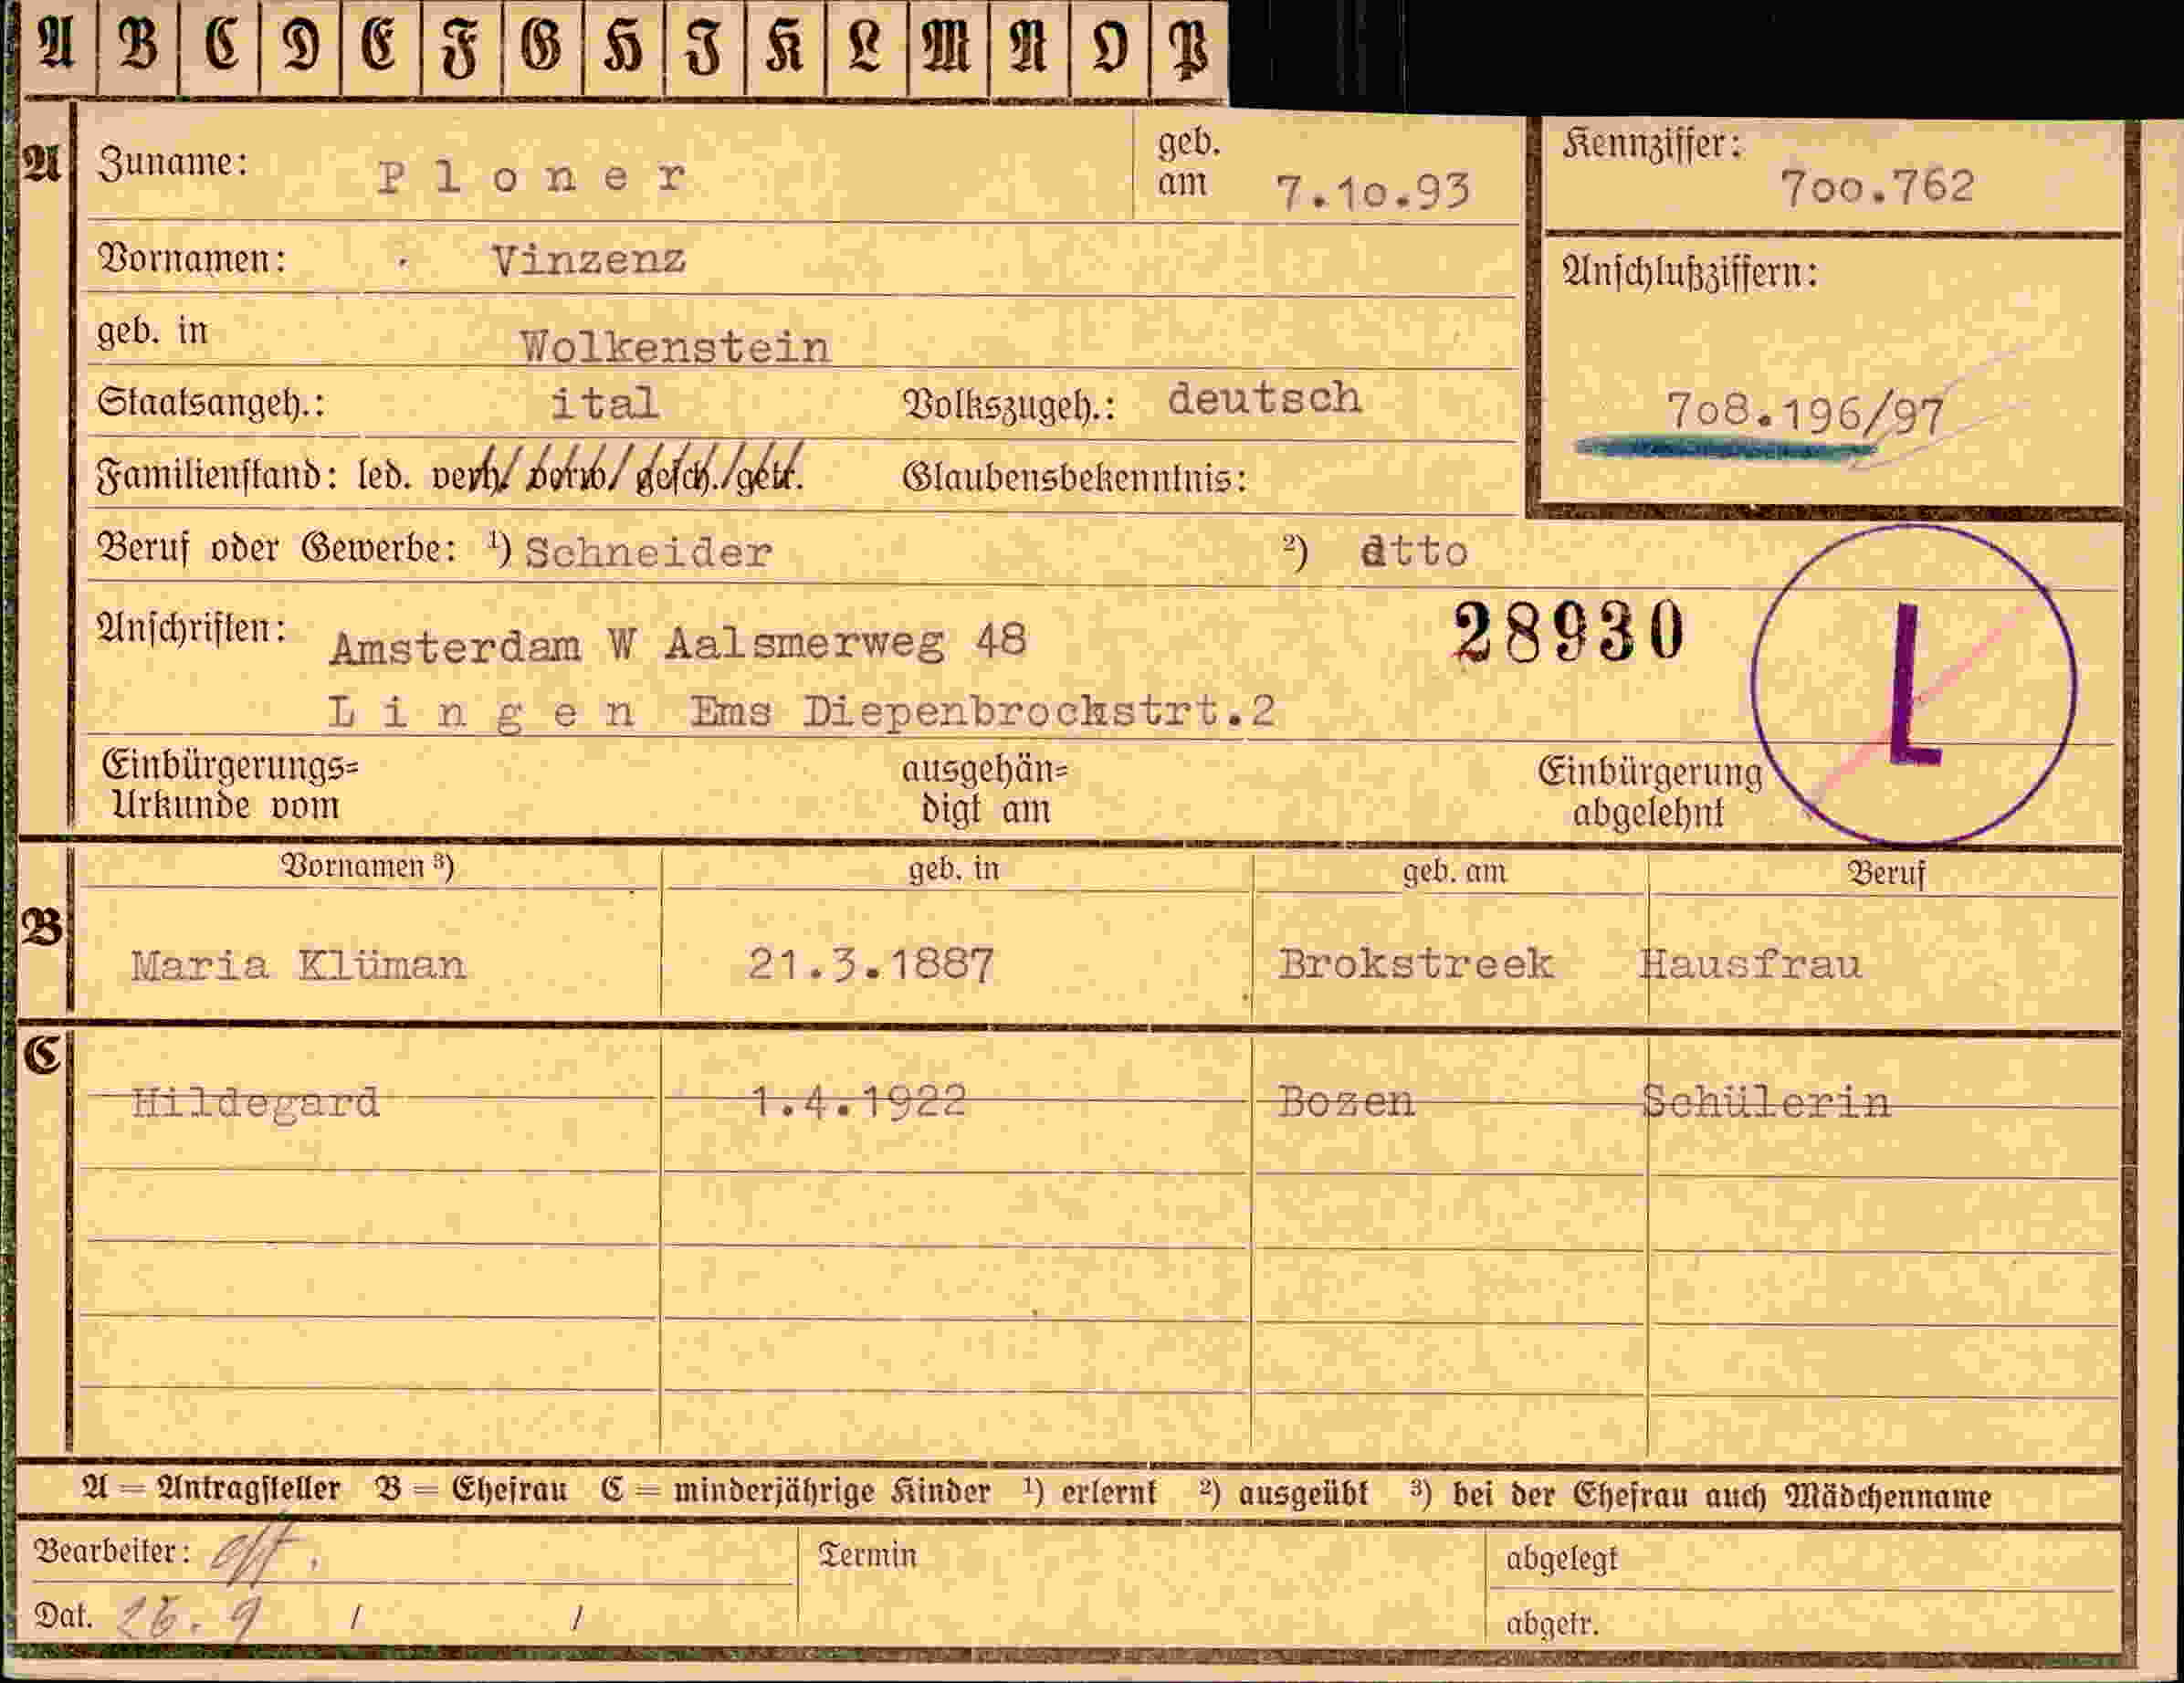 A B C D E F G H I K L M N O P
A Zuname: Ploner geb. am 7.10.93 Kennziffer: 7oo.762
Vornamen: Vinzenz
geb. in Wolkenstein Anschlußziffern:
Staatsangeh.: ital Volkszugeh.: deutsch 7o8.196/97
Familienstand: led. verh/ verw/ gesch./getr. Glaubensbekenntnis:
Beruf oder Gewerbe: ¹) Schneider ²) dtto
Anschriften: Amsterdam W Aalsmerweg 48 28930 L
Lingen Ems Diepenbrockstrt.2
Einbürgerungs= ausgehän= Einbürgerung
Urkunde vom digt am abgelehnt
Vornamen ³) geb. in geb. am Beruf
B Maria Klüman 21.3.1887 Brokstreek Hausfrau
C Hildegard 1.4.1922 Bozen Schülerin
A = Antragsteller B = Ehefrau C = minderjährige Kinder ¹) erlernt ²) ausgeübt ³) bei der Ehefrau auch Mädchenname
Bearbeiter: Termin abgelegt
Dat. 26.9 / / abgetr.